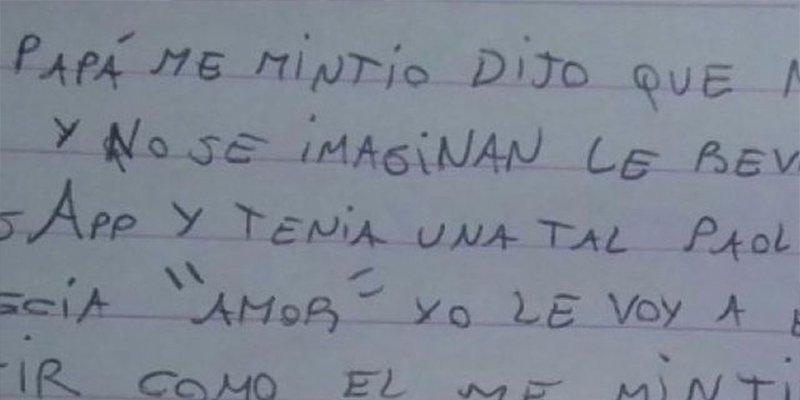 PAPÁ ME MINTIO DIJO QUE
Y NO SE IMAGINAN LE REV
APP Y TENIA UNA TAL PAOL
CIA "AMOR" YO LE VOY A
IR COMO EL ME MINTI